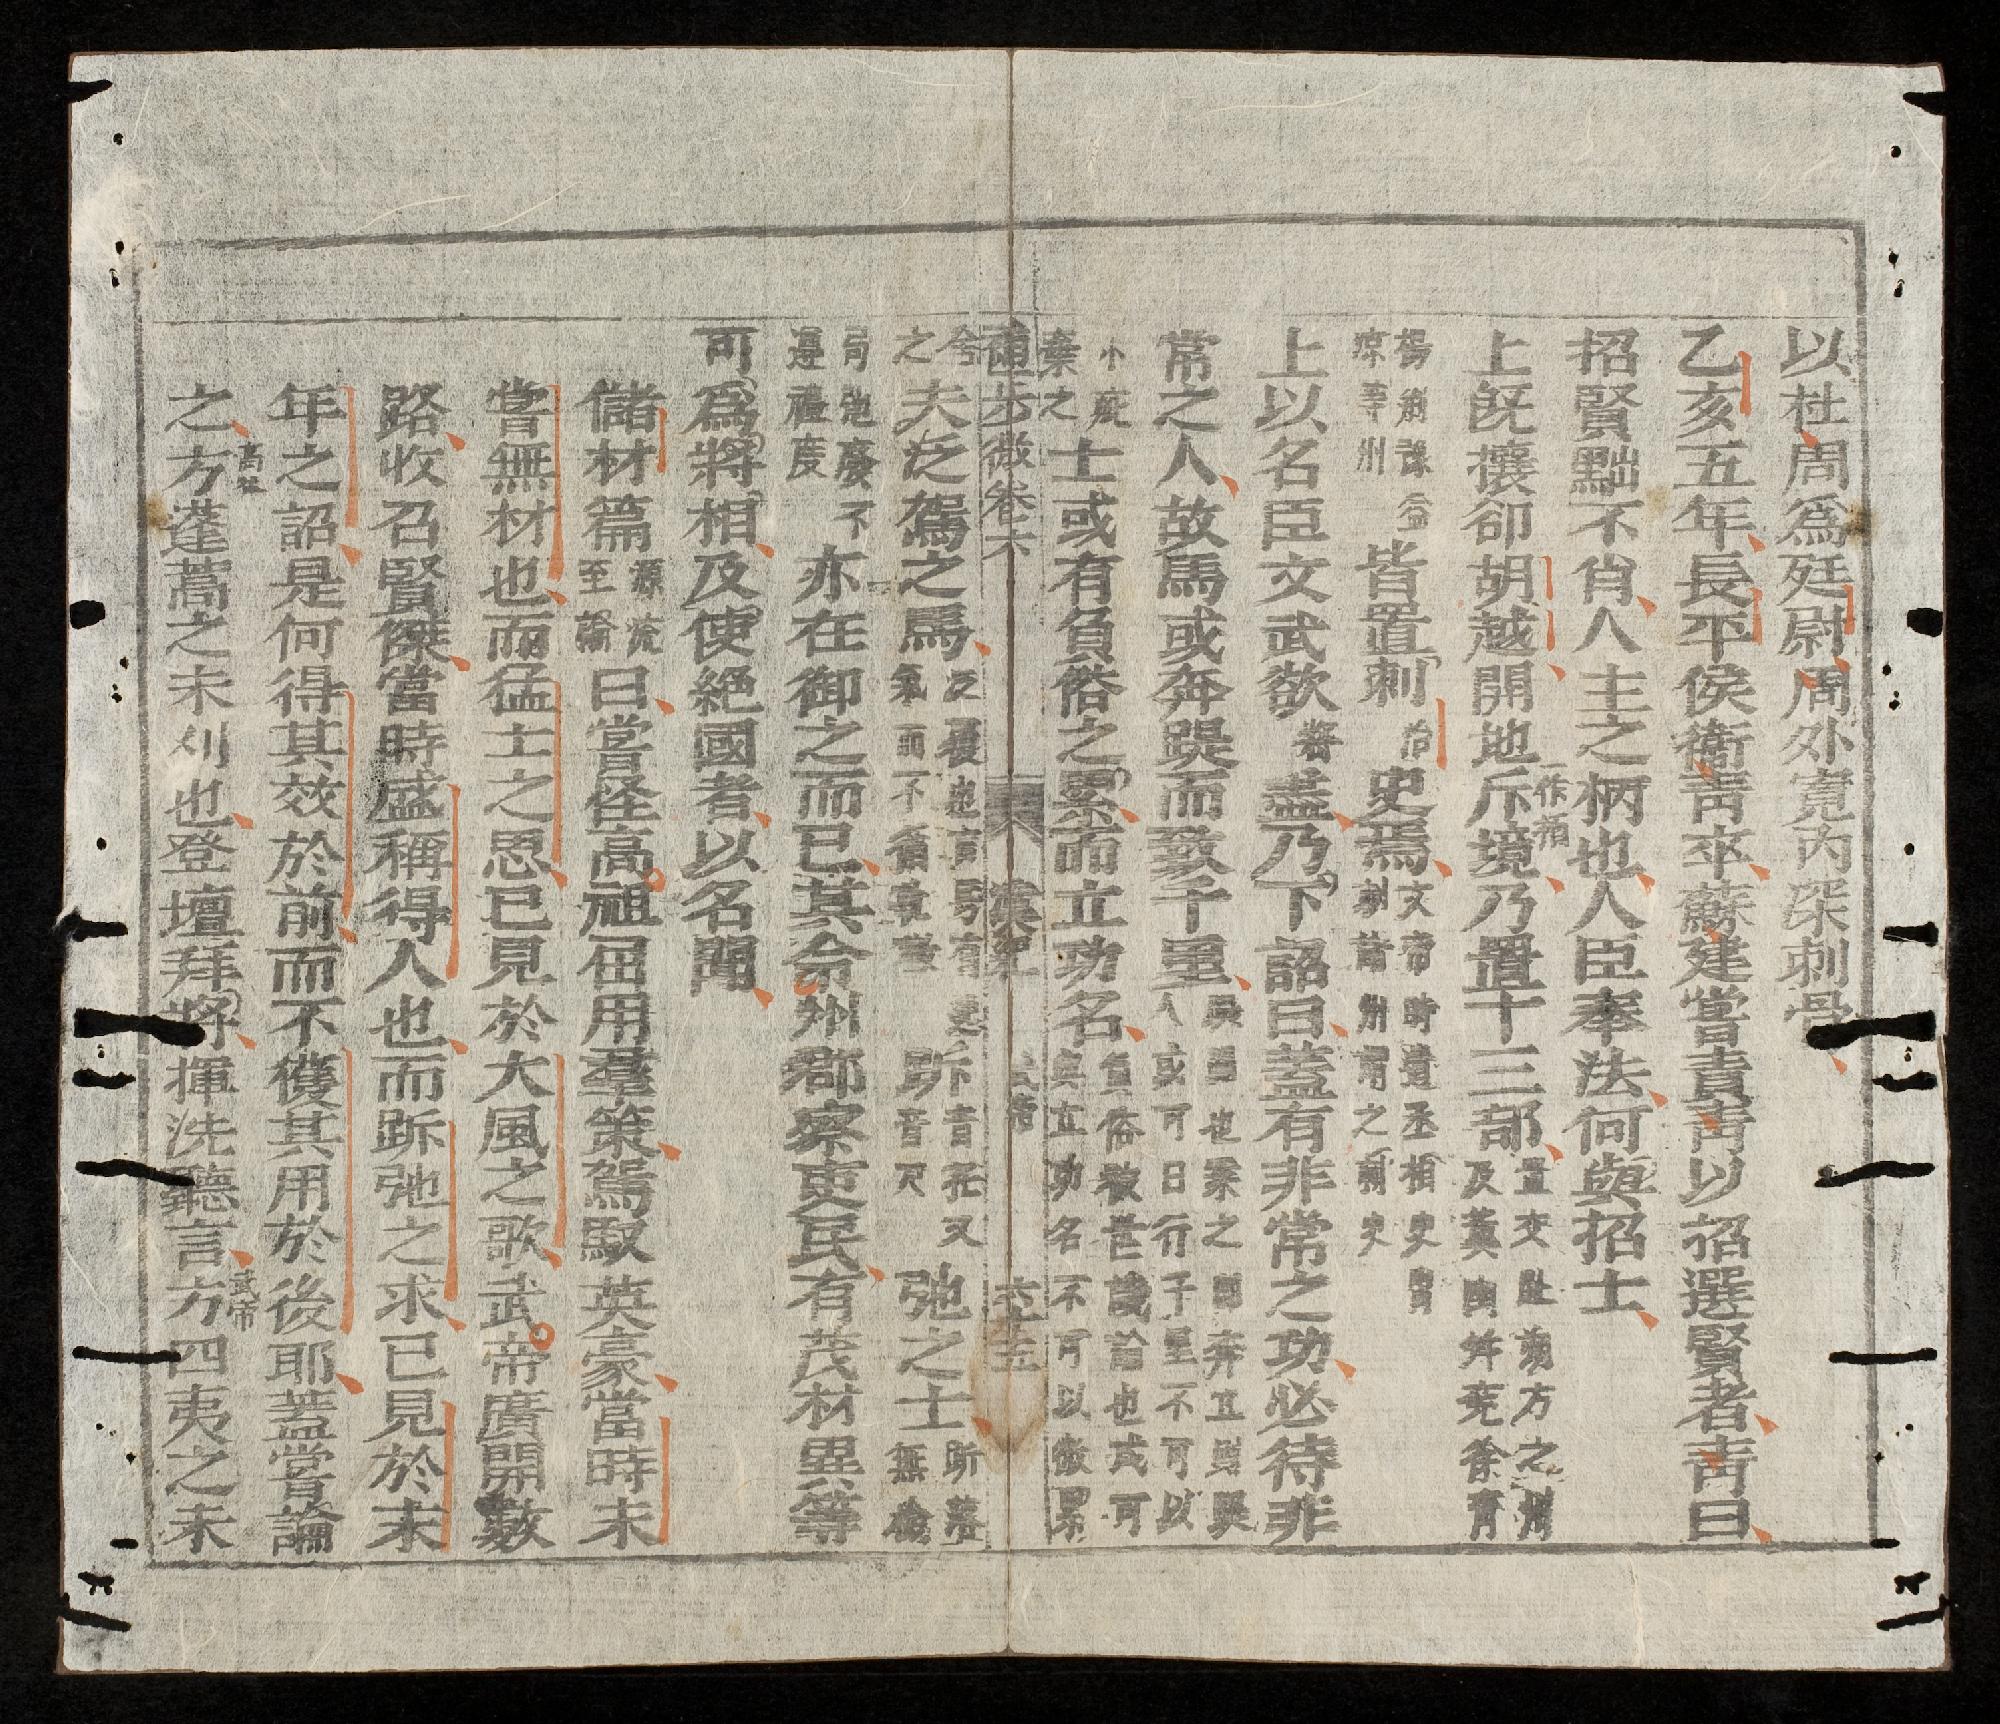 以杜周爲廷尉周外寛内深刺骨
乙亥五年長平侯衛青卒蘇建嘗責青以招選賢者青曰
招賢黜不肖人主之柄也人臣奉法何與招士
上旣攘卻胡越開地斥境乃置十三部置交趾朔方之州及冀幽幷兗徐青
一作
揚荊豫益涼等州皆置刺史焉文帝時遣丞相史刺諸州謂之刺史
上以名臣文武欲盡乃下詔曰蓋有非常之功必待非
常之人故馬或奔踶而致千里踶蹋也乘之卽奔立則踶人或可日行千里不可以
小疵棄之士或有負俗之累而立功名負俗被世譏論也或可與立功名不可以微累
少微卷六 漢紀 武帝 六十五
舍之夫泛駕之馬泛覆也言馬有逸氣而不循軌轍跅音托又音尺弛之士跅落無檢
局弛廢不遵禮度亦在御之而已其令州郡察吏民有茂材異等
可爲將相及使絶國者以名聞
儲材篇源流至論曰嘗怪高祖屈用羣策駕馭英豪當時未
嘗無材也而猛士之思已見於大風之歌武帝廣開數
路收召賢傑當時盛稱得人也而跅弛之求已見於末
年之詔是何得其效於前而不獲其用於後耶蓋嘗論
之方高祖蓬蒿之未刈也登壇拜將揮洗聽言方武帝四夷之未